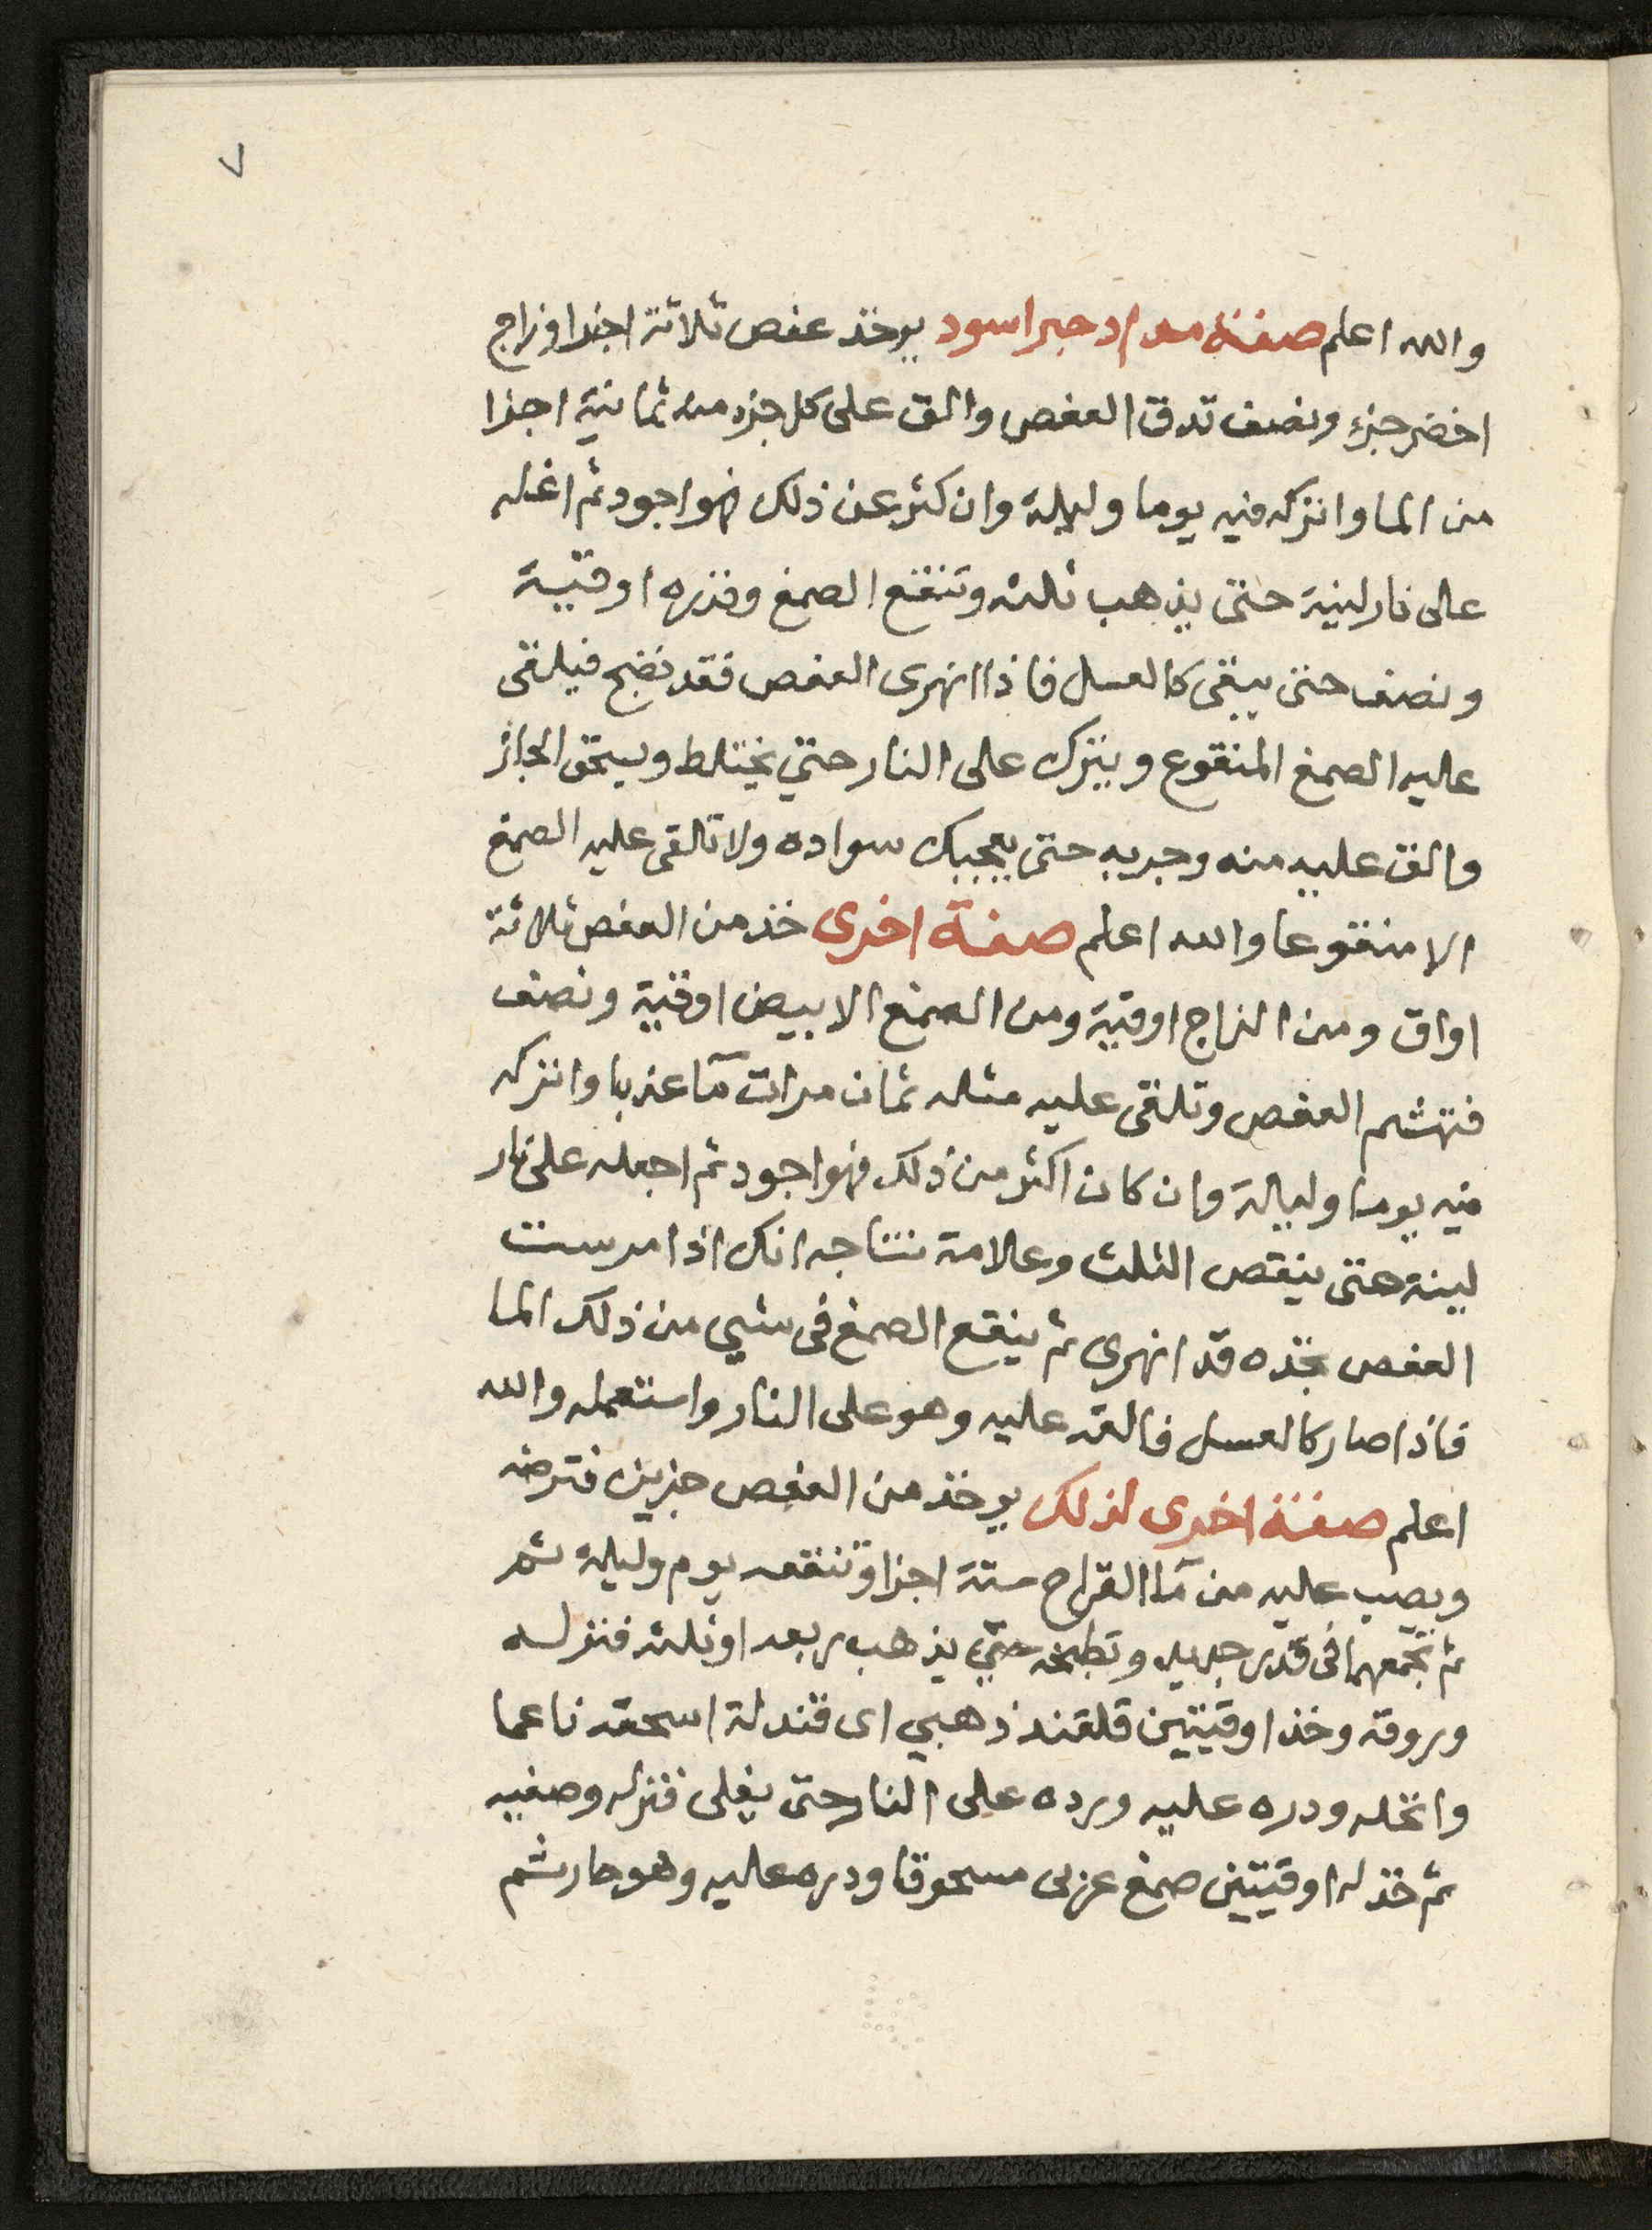 ٧
والله اعلم صفة مداد حبر اسود يوخذ عفص ثلاثة اجزا وزاج
اخضر جزء ونصف تدق العفص والق على كل جزء منه ثمانية اجزا
من الما واتركه فيه يوما وليلة وان كثر عن ذلك فهو اجود ثم اغله
على نار لينة حتى يذهب ثلثه وتنقع الصمغ وقدره اوقية
ونصف حتى يبقى كالعسل فاذا انهرى العفص فقد نضج فيلقى
عليه الصمغ المنقوع ويترك على النار حتي يختلط ويسحق الجاز
والق عليه منه وجربه حتى يعجبك سواده ولا تلقى عليه الصمغ
الا منقوعا والله اعلم صفة اخرى خذ من العفص ثلاثة
اواق ومن الزاج اوقية ومن الصمغ الابيض اوقية ونصف
فتهشم العفص وتلقى عليه مثله ثمان مرات مآ عذبا واتركه
فيه يوما وليلة وان كان اكثر من ذلك فهو اجود ثم اجعله على نار
لينة حتى ينقص الثلث وعلامة نتاجه انك اذا مرست
العفص تجده قد انهرى ثم ينقع الصمغ فى شي من ذلك الما
فاذا صار كالعسل فالقه عليه وهو على النار واستعمله والله
اعلم صفة اخرى لذلك يوخذ من العفص جزين فترضه
ويصب عليه من مآ القراح ستة اجزا وتنقعه يوم وليلة ثم
ثم تجمعهما فى قدر جديد وتطبخه حتي يذهب ربعه او ثلثه فتنزله
وروقه وخذ اوقيتين قلقند ذهبي اى قندلة اسحقه ناعما
وانخله ودره عليه ورده على النار حتى يغلى فنزله وصفيه
ثم خذ له اوقيتين صمغ عربى مسحوقا ودره عليه وهو حار ثم